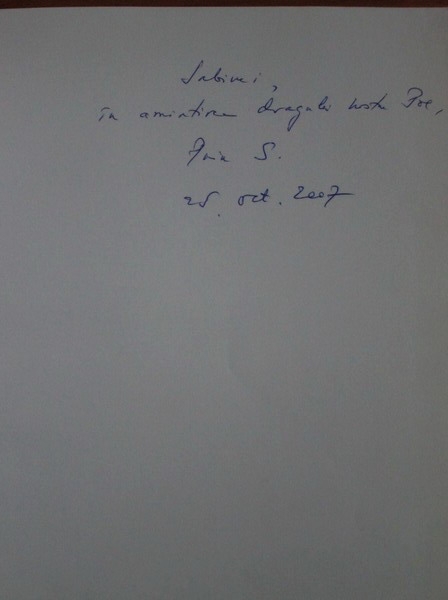 Sabinei,
în amintirea dragului nostru Poe,
Ana S.
25. oct. 2007